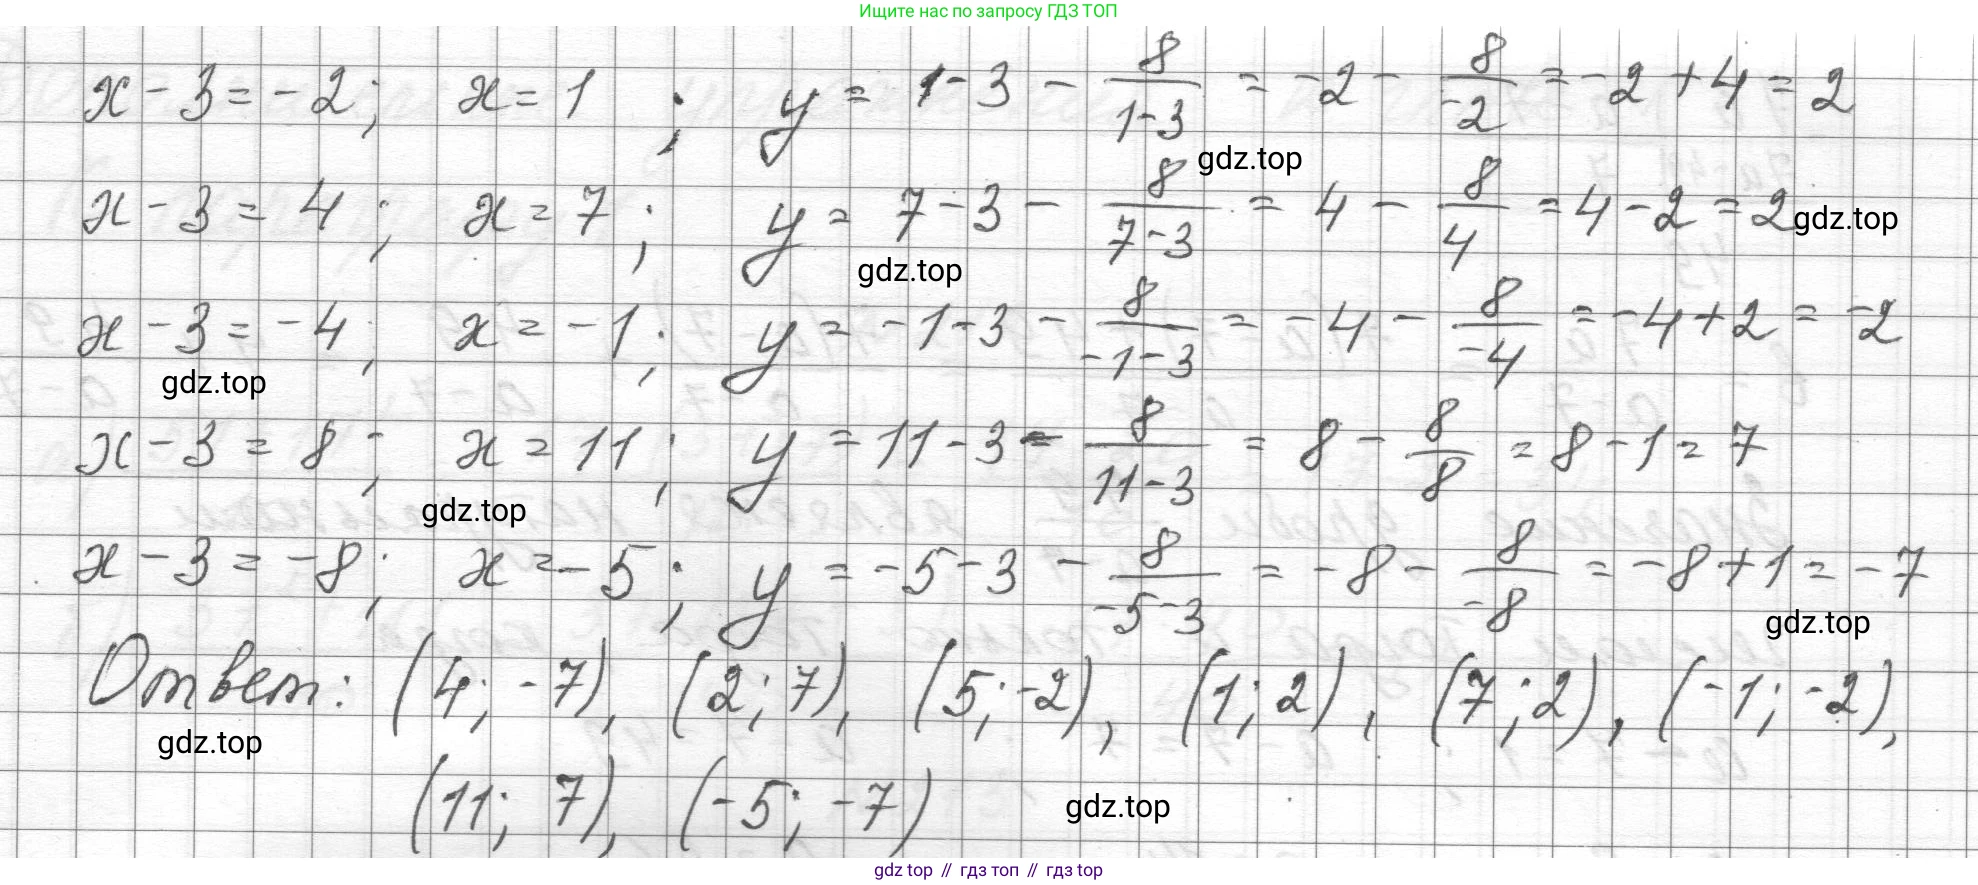 Ищите нас по запросу ГДЗ ТОП
x - 3 = -2; x = 1; y = 1 - 3 - 8/(1-3) = -2 - 8/(-2) = -2 + 4 = 2
gdz.top
x - 3 = 4; x = 7; y = 7 - 3 - 8/(7-3) = 4 - 8/4 = 4 - 2 = 2
gdz.top
gdz.top
x - 3 = -4; x = -1; y = -1 - 3 - 8/(-1-3) = -4 - 8/(-4) = -4 + 2 = -2
gdz.top
x - 3 = 8; x = 11; y = 11 - 3 - 8/(11-3) = 8 - 8/8 = 8 - 1 = 7
gdz.top
x - 3 = -8; x = -5; y = -5 - 3 - 8/(-5-3) = -8 - 8/(-8) = -8 + 1 = -7
gdz.top
Ответ: (4; -7), (2; 7), (5; -2), (1; 2), (7; 2), (-1; -2),
gdz.top
(11; 7), (-5; -7)
gdz.top
gdz top // гдз топ // гдз top